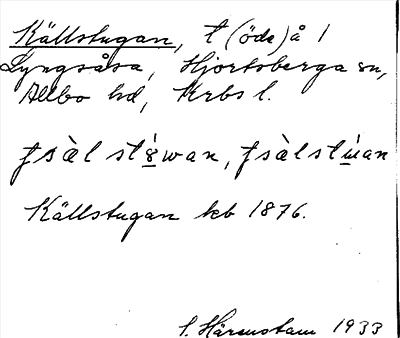 Källstugan, t (öde) å 1
Lyngsåsa, Hjortsberga sn,
Allbo hd, Krbs l.
tsὰl stɤ́wan, tsὰlstúan
Källstugan kb 1876.
S. Härenstam 1933